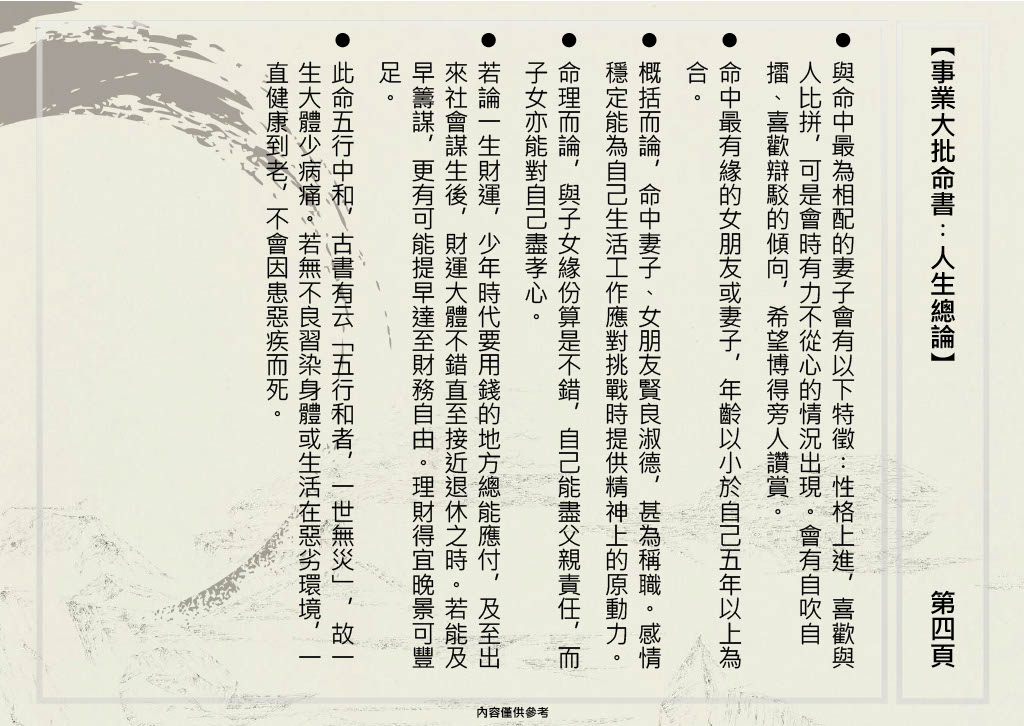 【事業大批命書：人生總論】
第四頁
●與命中最為相配的妻子會有以下特徵：性格上進，喜歡與
人比拼，可是會時有力不從心的情況出現。會有自吹自
擂、喜歡辯駁的傾向，希望博得旁人讚賞。
●命中最有緣的女朋友或妻子，年齡以小於自己五年以上為
合。
●概括而論，命中妻子、女朋友賢良淑德，甚為稱職。感情
穩定能為自己生活工作應對挑戰時提供精神上的原動力。
●命理而論，與子女緣份算是不錯，自己能盡父親責任，而
子女亦能對自己盡孝心。
●若論一生財運，少年時代要用錢的地方總能應付，及至出
來社會謀生後，財運大體不錯直至接近退休之時。若能及
早籌謀，更有可能提早達至財務自由。理財得宜晚景可豐
足。
●此命五行中和，古書有云「五行和者，一世無災」，故一
生大體少病痛。若無不良習染身體或生活在惡劣環境，一
直健康到老，不會因患惡疾而死。
內容僅供參考